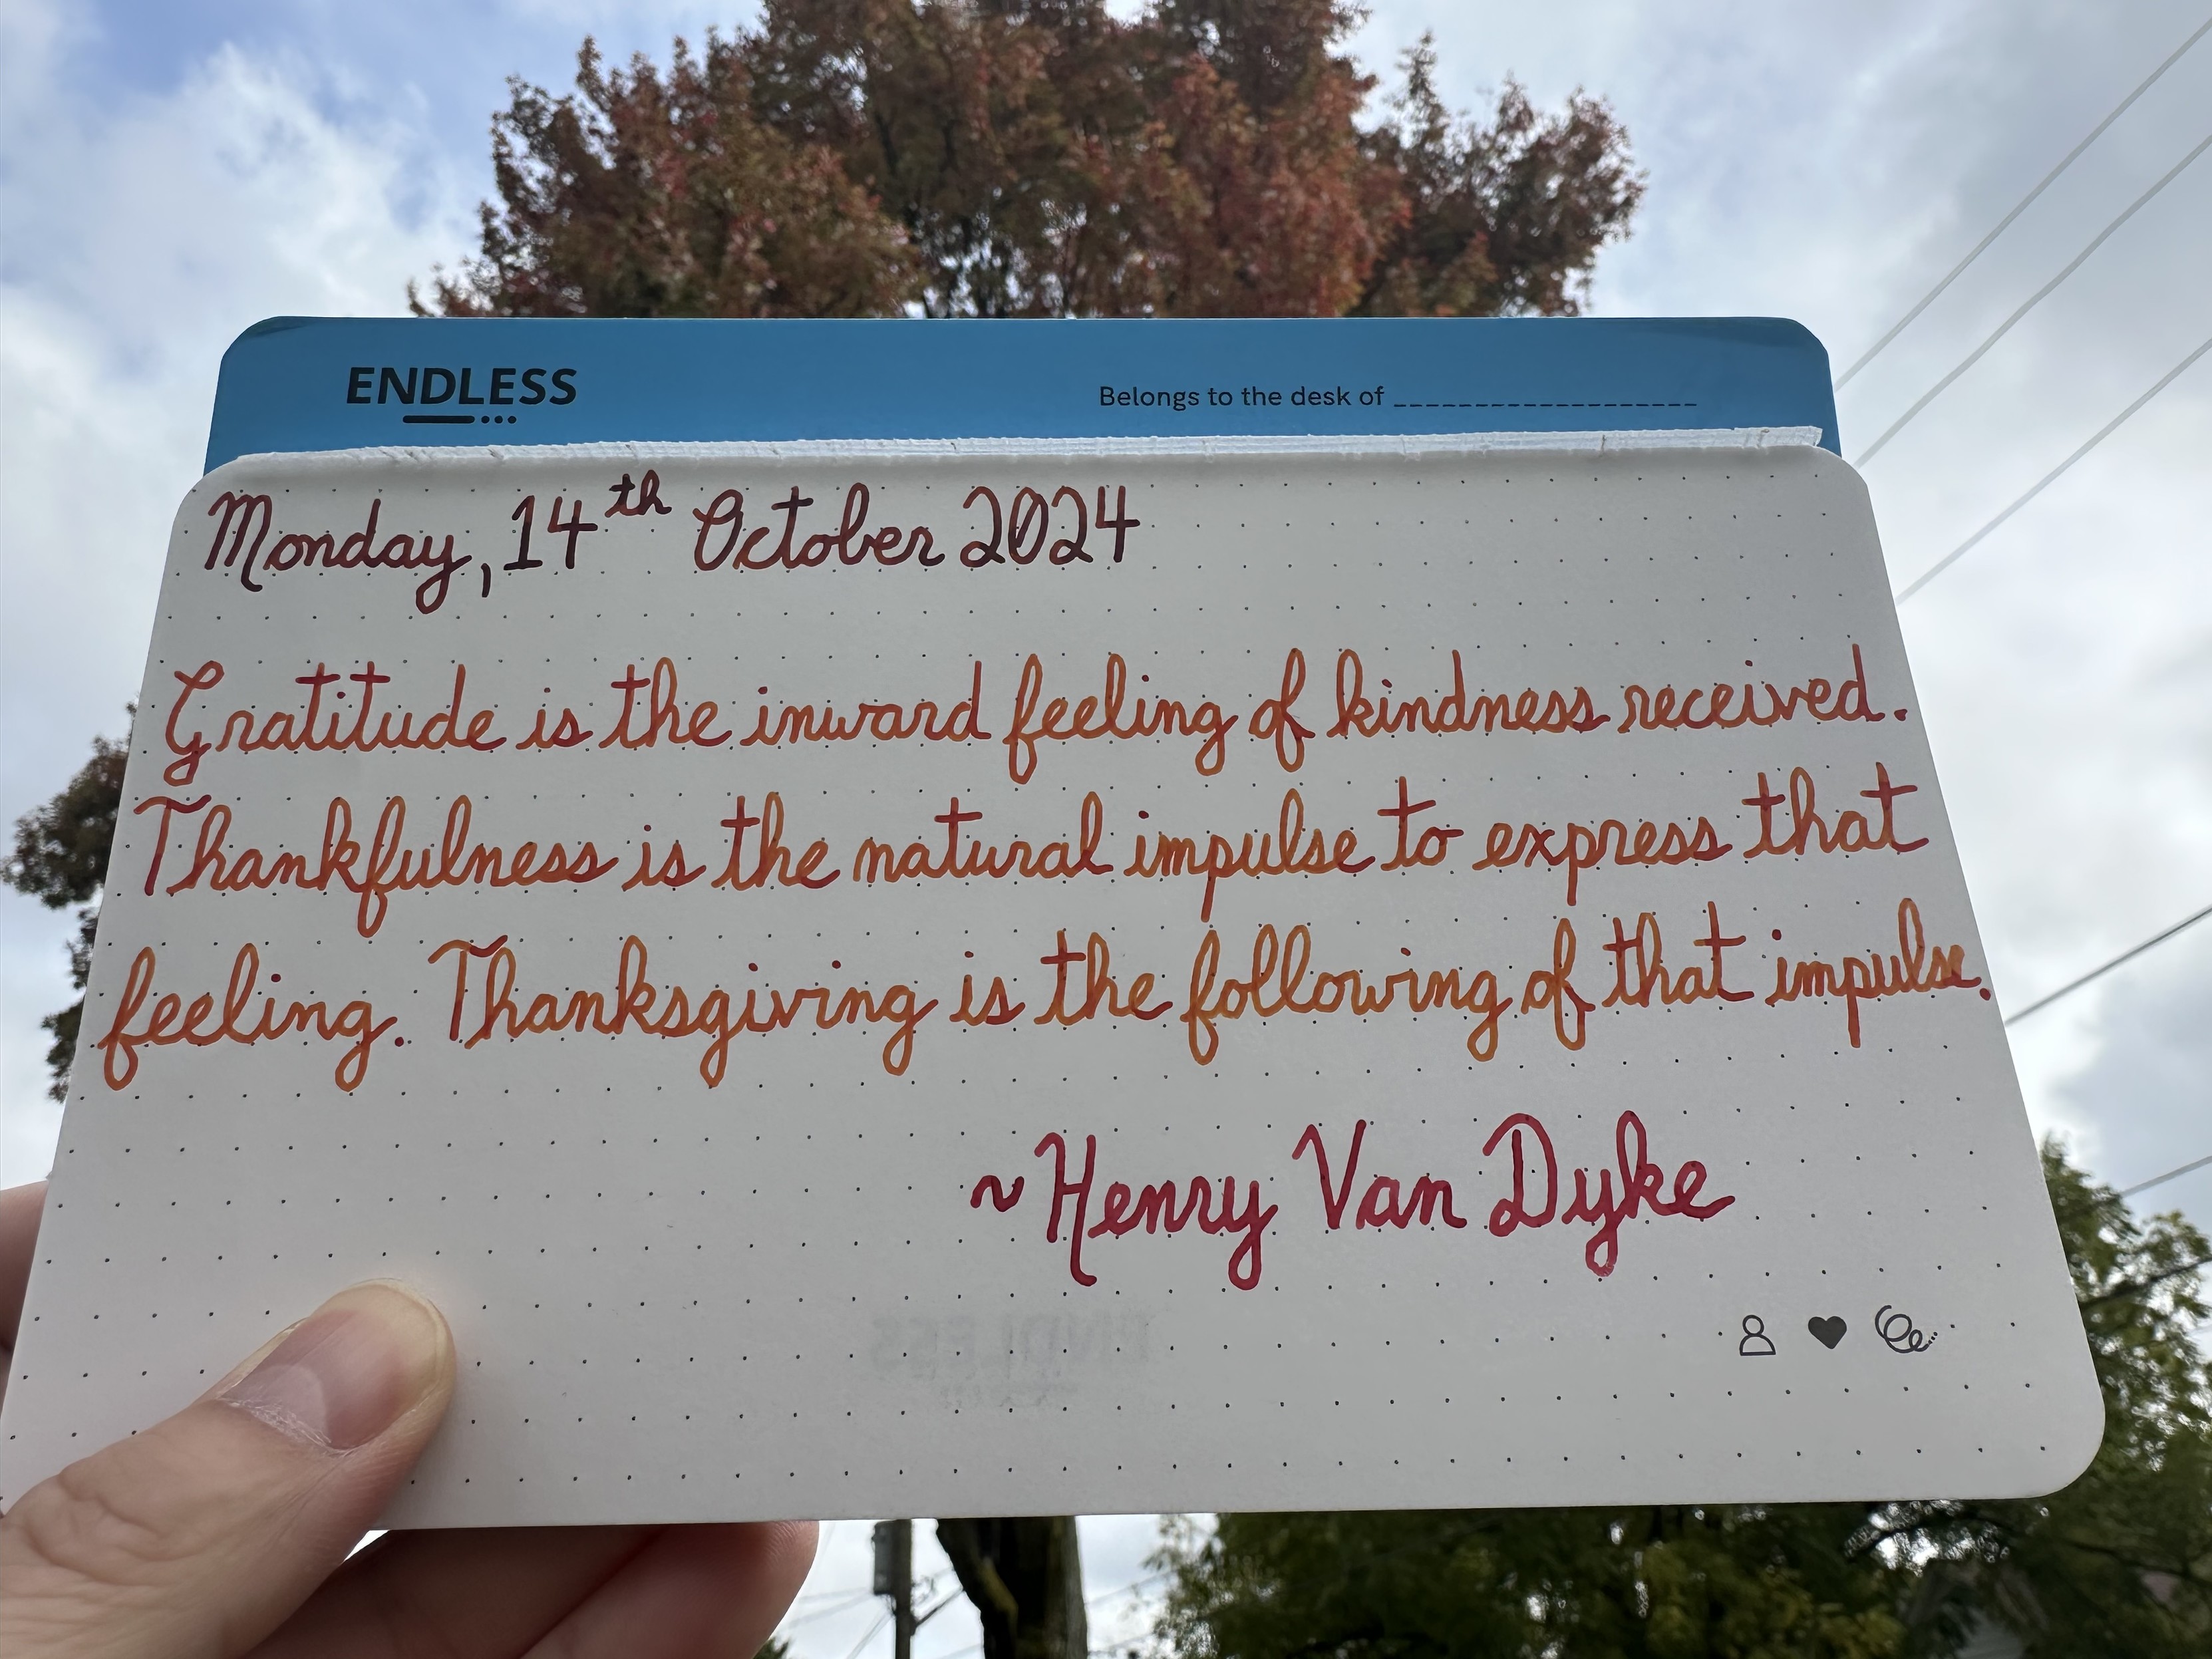 ENDLESS
Belongs to the desk of ____________________
Monday, 14th October 2024
Gratitude is the inward feeling of kindness received.
Thankfulness is the natural impulse to express that
feeling. Thanksgiving is the following of that impulse.
~Henry Van Dyke
ENDLESS